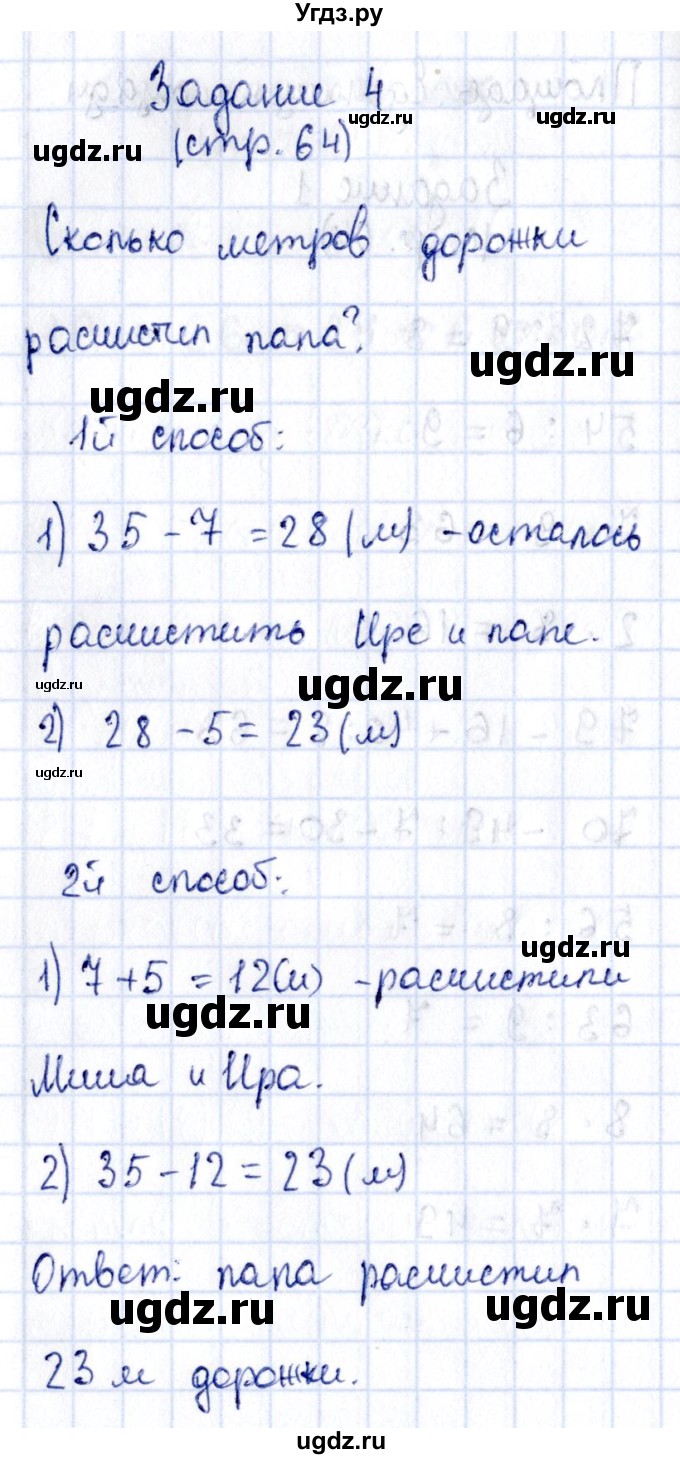 Угдз.ру
Задание 4
ugdz.ru
ugdz.ru
ugdz.ru
(стр. 64)
Сколько метров дорожки
расчистил папа?
ugdz.ru
ugdz.ru
1й способ:
1) 35 - 7 = 28 (м) - осталось
расчистить Ире и папе.
ugdz.ru
ugdz.ru
2) 28 - 5 = 23 (м)
ugdz.ru
2й способ:
ugdz.ru
1) 7 + 5 = 12 (м) - расчистили
ugdz.ru
Миша и Ира.
2) 35 - 12 = 23 (м)
Ответ: папа расчистил
ugdz.ru
ugdz.ru
23 м дорожки.
ugdz.ru